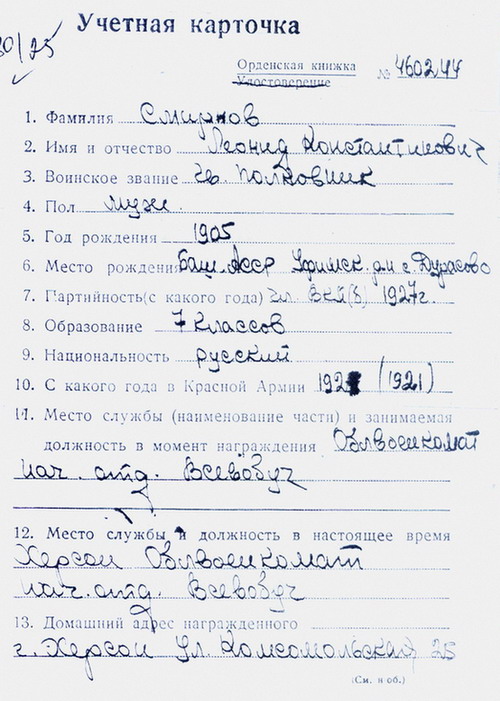 30/25
Учетная карточка
Орденская книжка
Удостоверение
№ 460244
1. Фамилия Смирнов
2. Имя и отчество Леонид Константинович
3. Воинское звание гв. полковник
4. Пол муж.
5. Год рождения 1905
6. Место рождения Баш. Асср Уфимск. р-н с. Дурасово
7. Партийность(с какого года) Чл. ВКП(б) 1927г.
8. Образование 7 классов
9. Национальность русский
10. С какого года в Красной Армии 1921 (1921)
11. Место службы (наименование части) и занимаемая
должность в момент награждения Облвоенкомат
нач. отд. Всевобуч
12. Место службы и должность в настоящее время
Херсон Облвоенкомат
нач. отд. Всевобуч
13. Домашний адрес награжденного
г. Херсон ул. Комсомольская 25
(См. н об.)